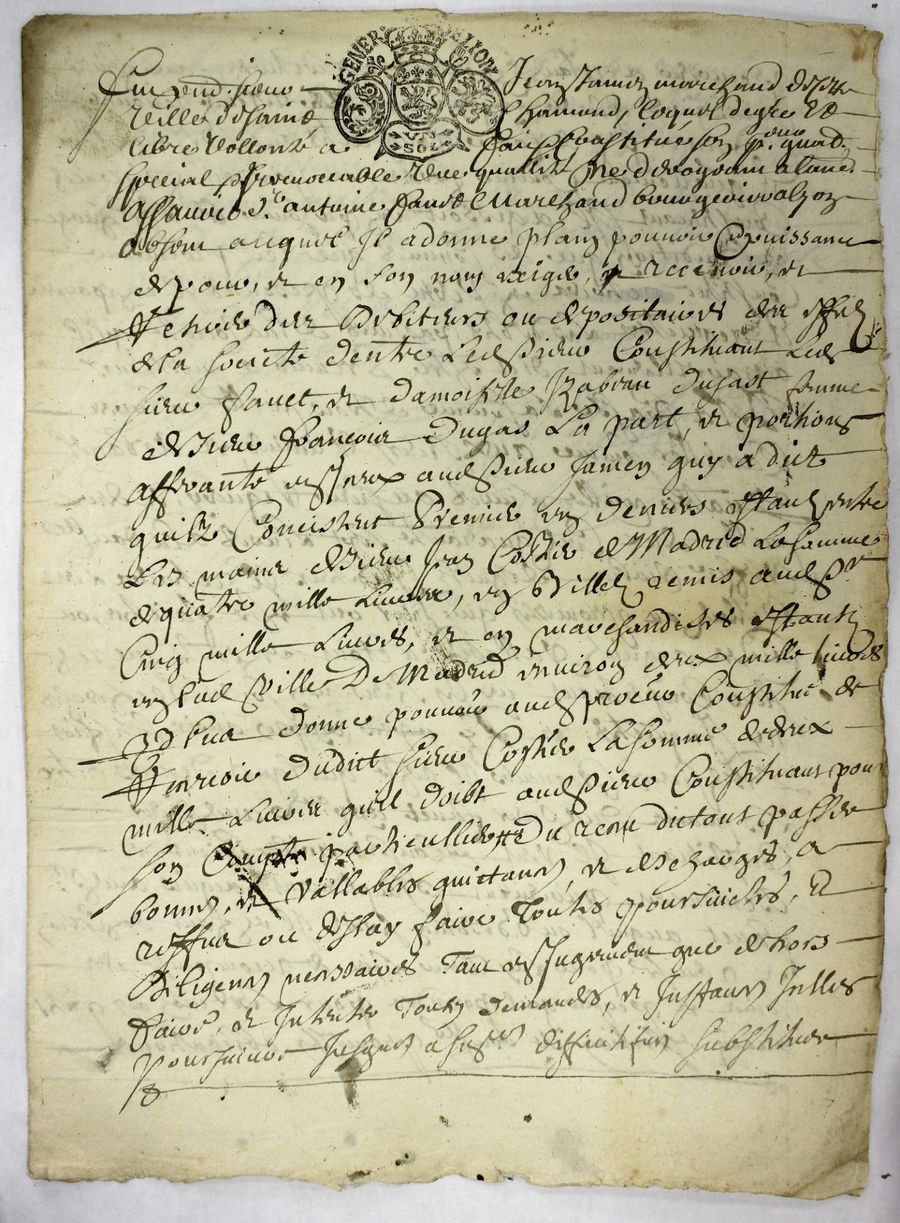 GENER LYON
Jean Jamen marchand de
ville de Saint Chamond, lequel de gré et
libre vollonté a fait et constitué son
special et irrevocable une quallité ne derogeant a l'autre
assavoir Sr antoine fauet Marchand bourgeois
UN SOL
absent auquel Il a donné plain pouvoir et puissance
de pour, et en son nom exiger, recevoir, et
Retirer des debiteurs ou depositaires des effets
de la societé d'entre Ledit Sieur Constituant Led
sieur fauet, et damoiselle Izabeau dugast femme
de sieur françois Dugas La part, et portions
afferante audit Sieur Jamen quy a dict
quils Concistent Premier en deniers estant entre
Les mains de sieur Jean Costie de Madrid La somme
de quatre mille Livres, en Billets remis aud Sr
Cinq mille Livres, et en marchandises estants
en lad Ville De Madrid environ deux mille livres
donne pouvoir aud Constitué de
Retirer dudict sieur Costie La somme de deux
mille Livres quil doibt aud Sieur Constituant pour
son Compte particullier Du receu du tout passer
bonnes, et Vallables quittances, et descharges, a
reffus ou deslay faire Toutes poursuictes, et
Diligences necessaires Tant en Jugement que dehors
faire, et Intenter Toutes demandes, et Instances Icelles
Poursuivre Jusques a diffinitifve substituer